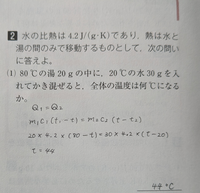 2 水の比熱は4.2J/(g·K)であり、熱は水と
湯の間のみで移動するものとして、次の問い
に答えよ。
(1) 80℃の湯20gの中に、20℃の水30gを入
れてかき混ぜると、全体の温度は何℃にな
るか。
Q₁ = Q₂
m₁C₁(t₁-t) = m₂C₂(t-t₂)
20×4.2×(80-t) = 30×4.2×(t-20)
t = 44
44℃